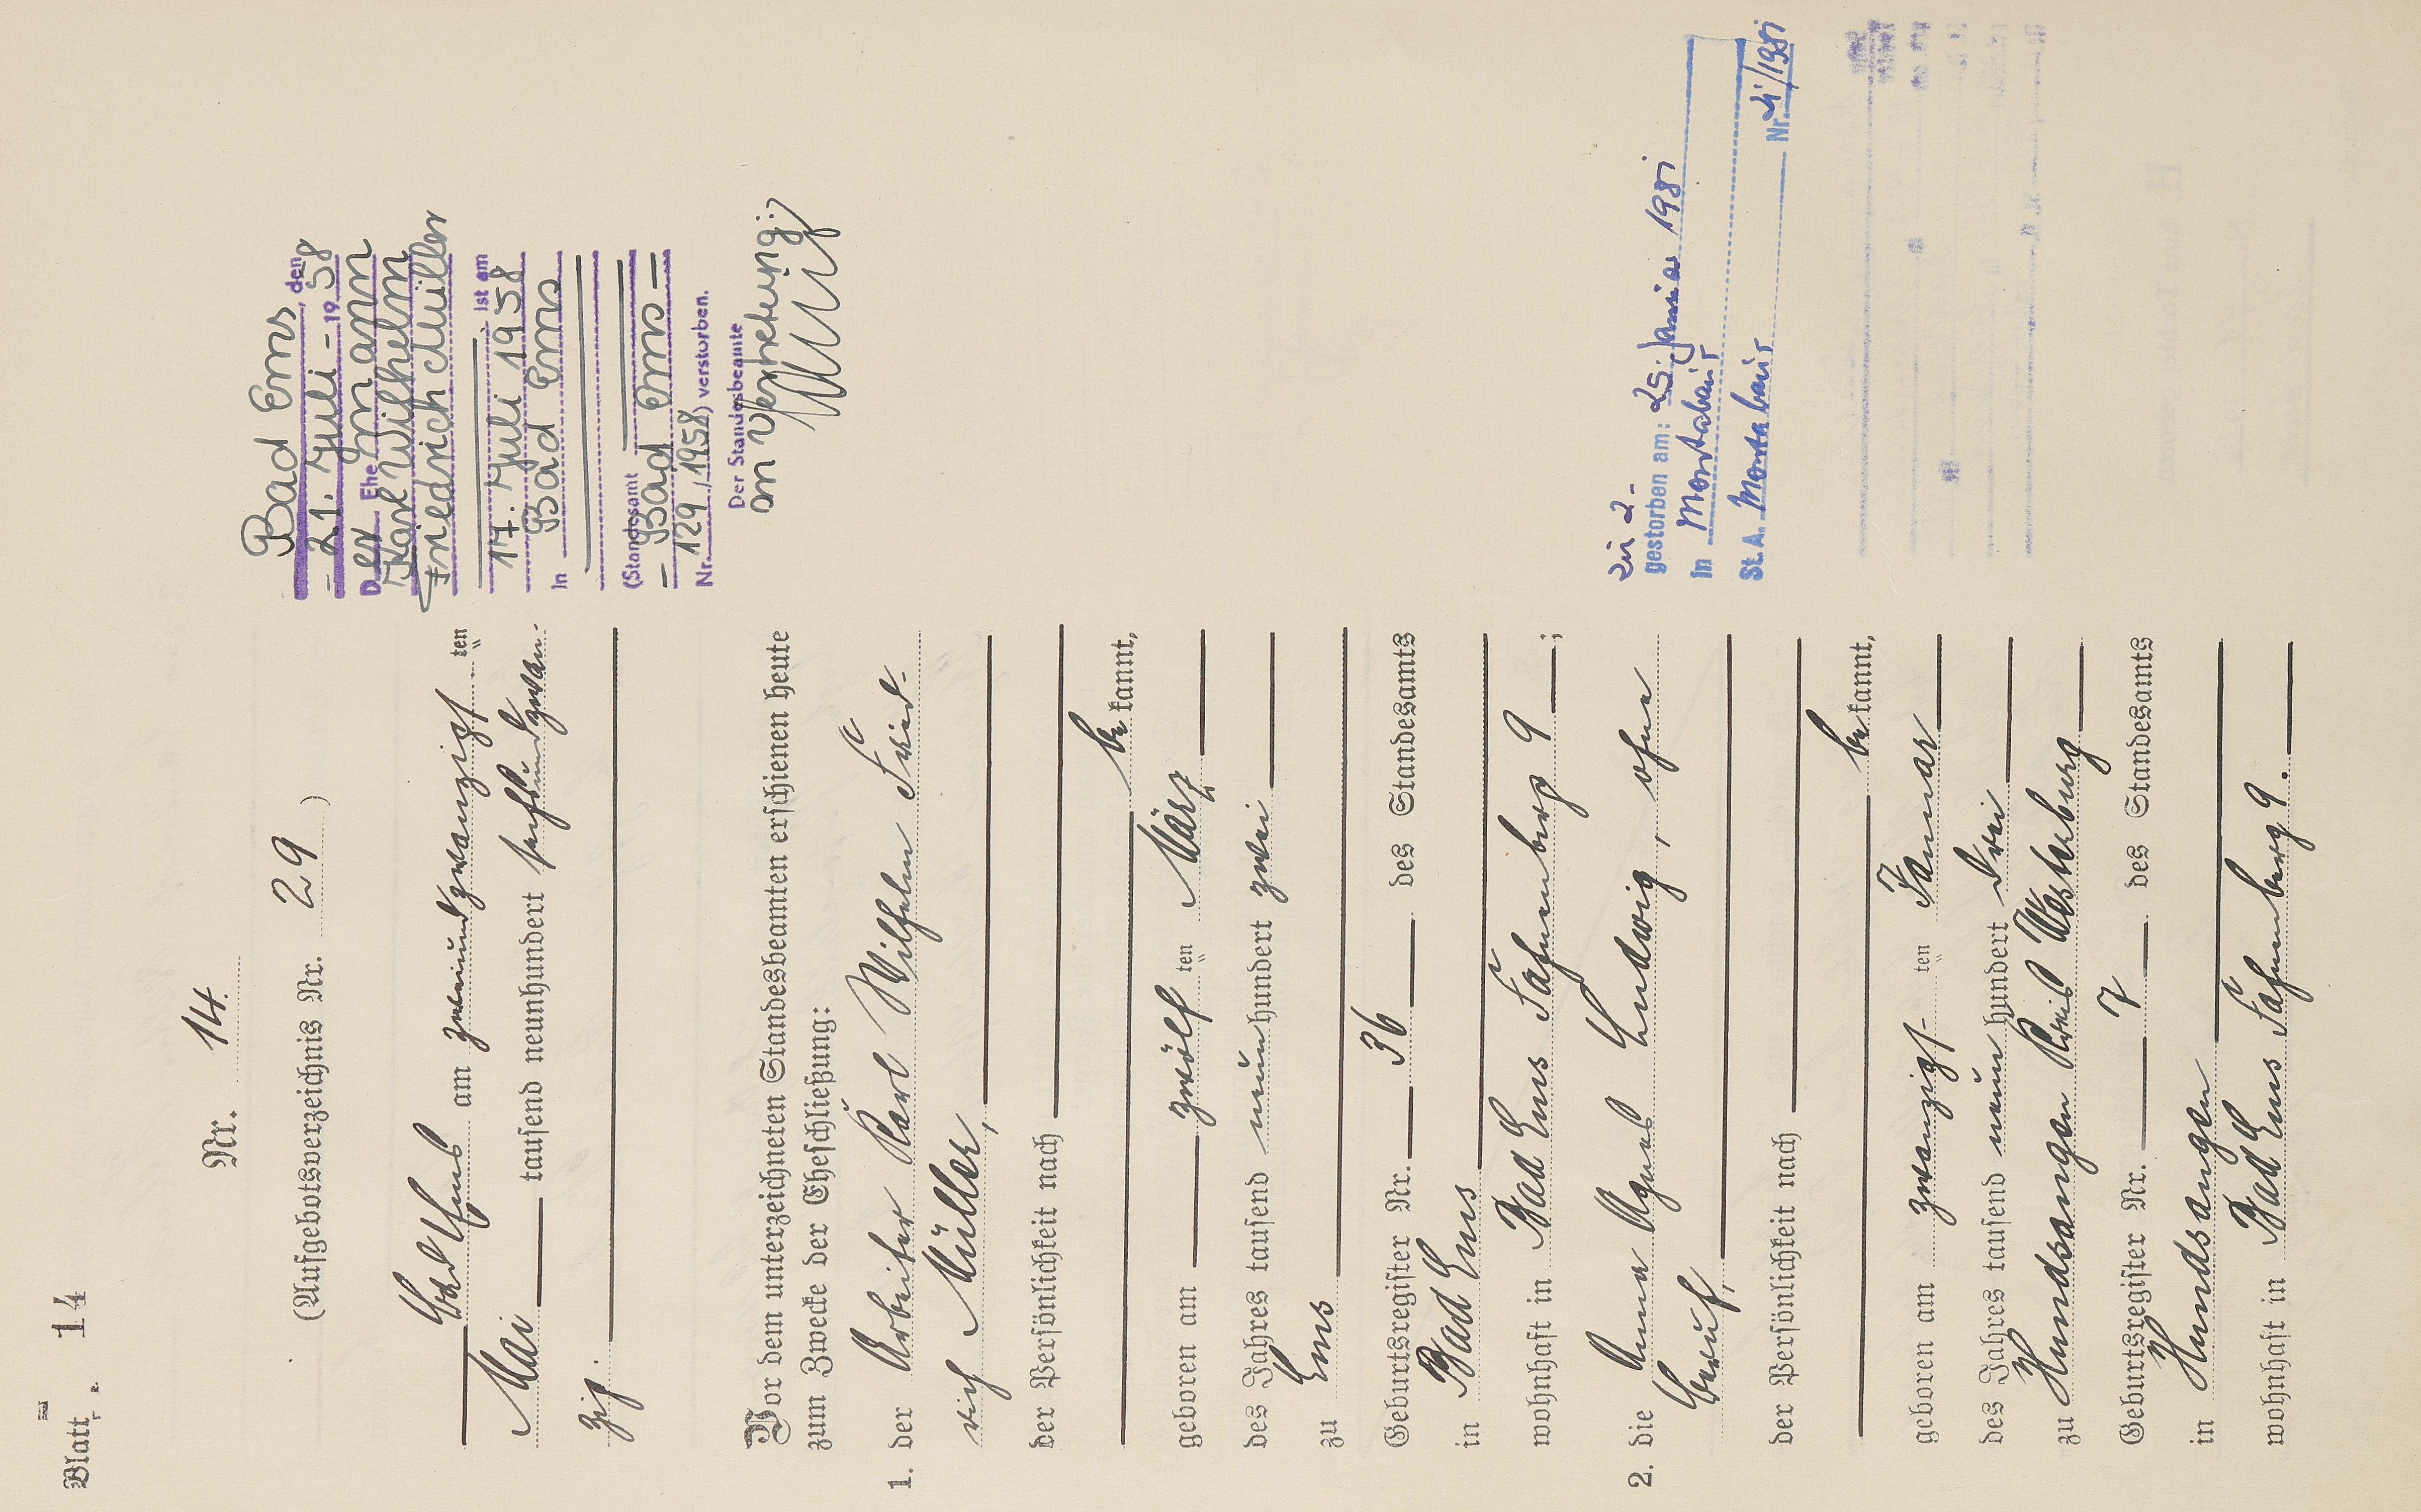 Blatt 14
Nr. 14.
(Aufgebotsverzeichnis Nr. 29)
Bad Ems am zweiundzwanzigs ten
Mai tausend neunhundert sechsundzwan-
zig.
Vor dem unterzeichneten Standesbeamten erschienen heute
zum Zwecke der Eheschließung:
1. der Arbeiter Karl Wilhelm Fried-
rich Müller,
der Persönlichkeit nach
be kannt,
geboren am zwölf ten März
des Jahres tausend neun hundert zwei
zu Ems
Geburtsregister Nr. 36 des Standesamts
in Bad Ems
wohnhaft in Bad Ems Fahnenberg 9 ;
2. die Anna Agnes Ludwig, ohne
Beruf,
der Persönlichkeit nach
be kannt,
geboren am zwanzigs- ten Januar
des Jahres tausend neun hundert drei
zu Hundsangen Kreis Westerburg
Geburtsregister Nr. 7 des Standesamts
in Hundsangen
wohnhaft in Bad Ems Fahnenberg 9.
Bad Ems, den
- 21. Juli - 19 58
Der Ehe mann
Karl Wilhelm
Friedrich Müller
ist am
17. Juli 1958
in Bad Ems
(Standesamt
- Bad Ems -
Nr. 129 / 1958) verstorben.
Der Standesbeamte
in Vertretung:
zu 2-
gestorben am: 25. Januar 1981
in Montabaur
St. A. Montabaur Nr. 21/1981